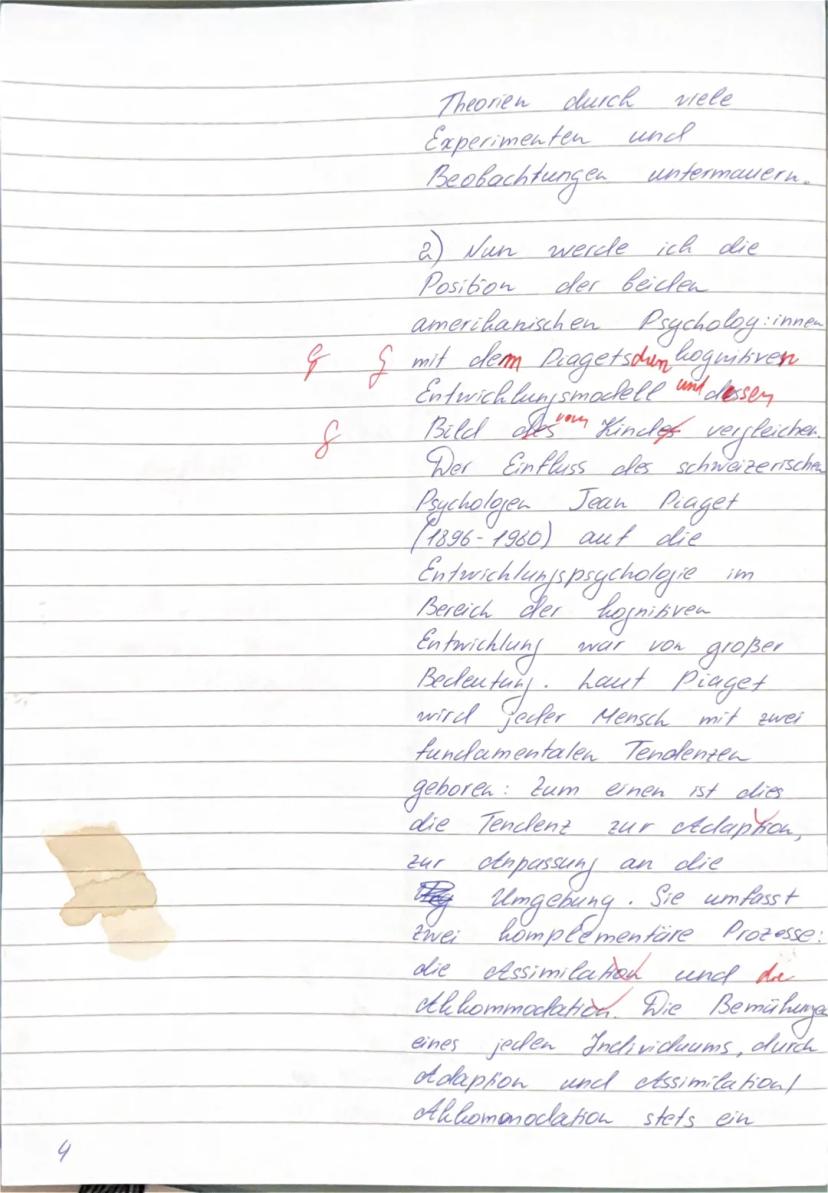 Theorien durch viele
Experimenten und
Beobachtungen untermauern.
2) Nun werde ich die
Position der beiden
amerikanischen Psycholog:innen
g g mit dem Piagetschen kognitiven
Entwicklungsmodell und dessen
g Bild des vom Kindes vergleichen.
Der Einfluss des schweizerischen
Psychologen Jean Piaget
(1896-1980) auf die
Entwicklungspsychologie im
Bereich der kognitiven
Entwicklung war von großer
Bedeutung. Laut Piaget
wird jeder Mensch mit zwei
fundamentalen Tendenzen
geboren: Zum einen ist dies
die Tendenz zur Adaption,
zur Anpassung an die
Umgebung. Sie umfasst
zwei komplementäre Prozesse:
die Assimilation und die
Akkommodation. Die Bemühunge
eines jeden Individuums, durch
Adaption und Assimilation/
Akkomonodation stets ein
4